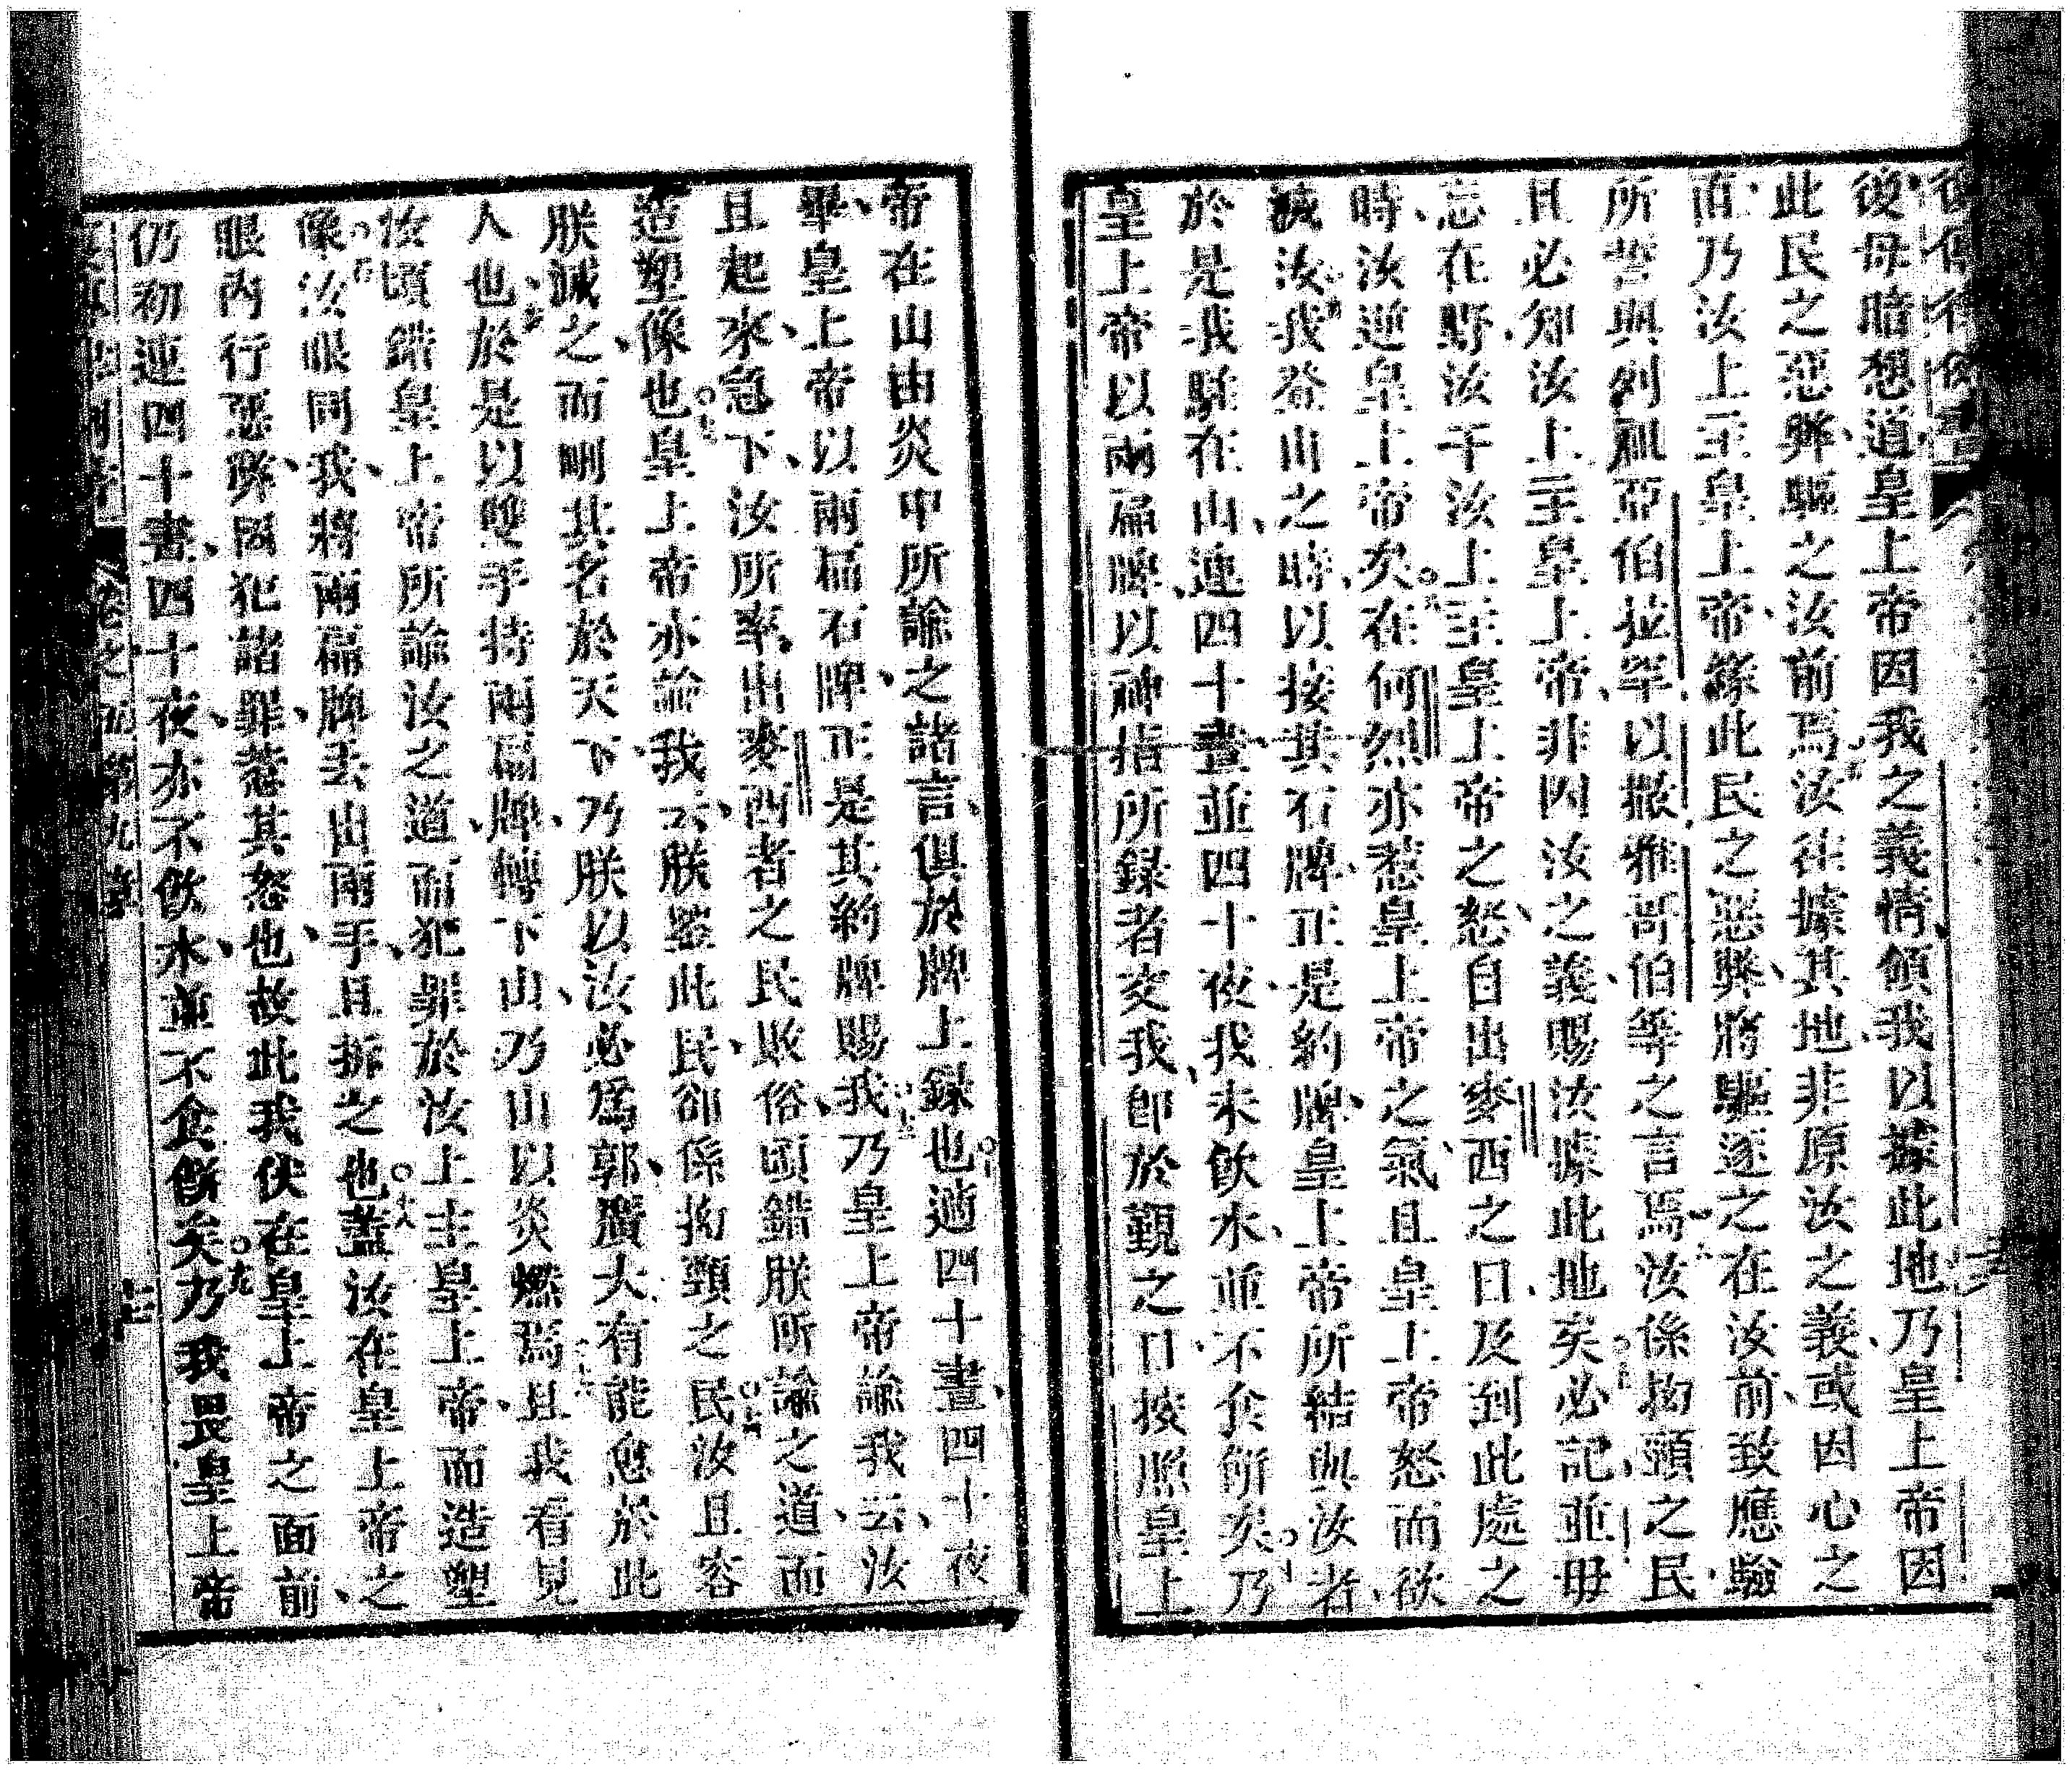 後毋暗想道皇上帝因我之義情領我以據此地乃皇上帝因
此民之惡弊驅之汝前焉汝往據其地非原汝之義或因心之
直乃汝上主皇上帝緣此民之惡弊將驅逐之在汝前致應驗
所誓與列祖亞伯拉罕以撒雅哥伯等之言焉汝係拗頸之民
且必知汝上主皇上帝非因汝之義賜汝據此地矣必記並毋
忘在野汝干汝上主皇上帝之怒自出麥西之日及到此處之
時汝逆皇上帝矣在何烈亦惹皇上帝之氣且皇上帝怒而欲
滅汝我登山之時以接其石牌正是約牌皇上帝所結與汝者
於是我駐在山連四十晝並四十夜我未飲水並不食餅矣乃
皇上帝以兩扁牌以神指所錄者交我即於覲之日按照皇上
帝在山由炎中所諭之諸言俱於牌上錄也適四十晝四十夜
畢皇上帝以兩楄石牌正是其約牌賜我乃皇上帝諭我云汝
且起來急下汝所率出麥西者之民敗俗頃錯朕所諭之道而
造塑像也皇上帝亦諭我云朕鑒此民卻係拗頸之民汝且容
朕滅之而刪其名於天下乃朕以汝必爲郭廣大有能愈於此
人也於是以雙手持兩楄牌轉下山乃山以炎燃焉且我看見
汝頃錯皇上帝所諭汝之道而犯罪於汝上主皇上帝而造塑
像汝眼同我將兩楄牌丟出兩手且拆之也蓋汝在皇上帝之
眼內行惡弊因犯諸罪惹其怒也故此我伏在皇上帝之面前
仍初連四十晝四十夜亦不飲水並不食餅矣乃我畏皇上帝
卷之五第九章